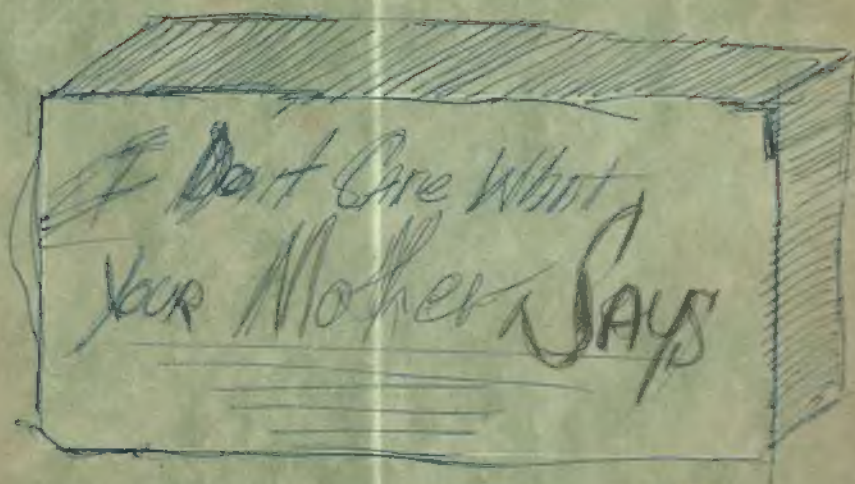 I Don't Care What
Your Mother Says